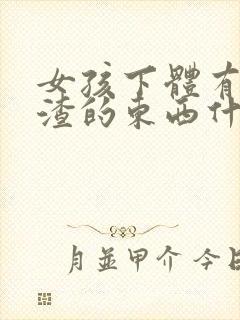 女孩下體有
渣的東西什
月並甲介 今日